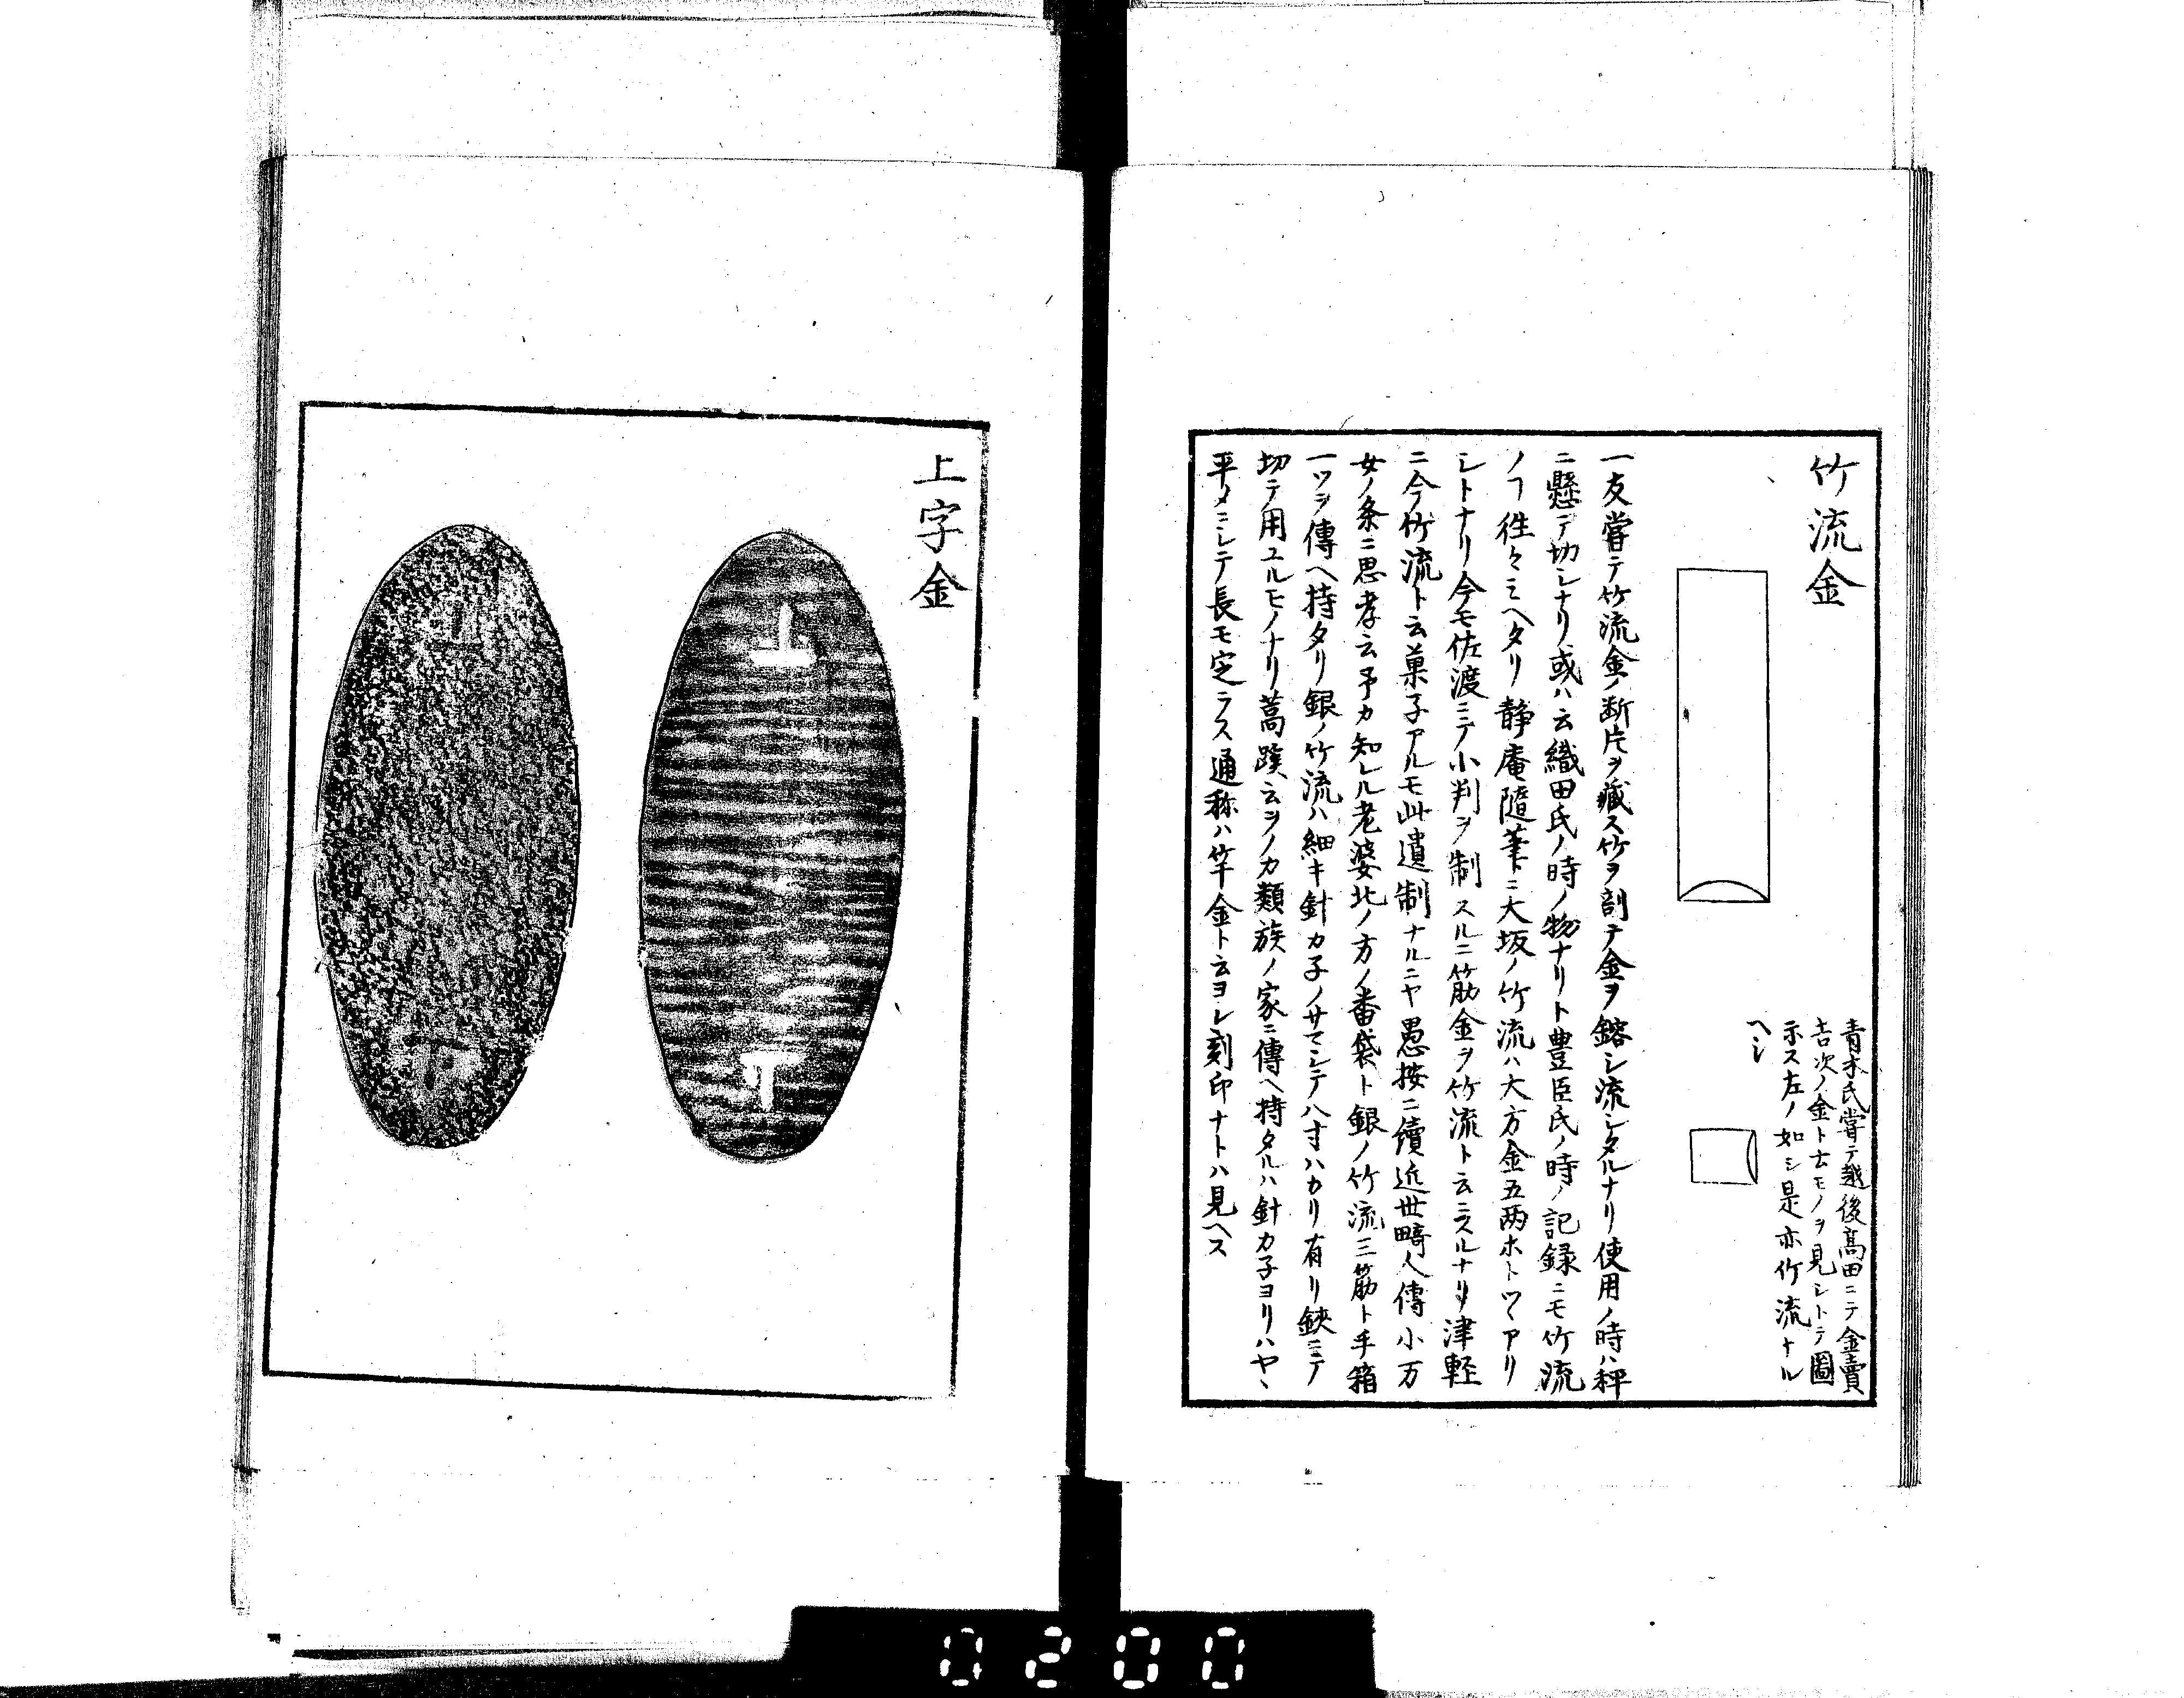 竹流金
青木氏嘗テ越後髙田ニテ金賣
吉次ノ金ト云モノヲ見シトテ圖
示ス左ノ如シ是亦竹流ナル
ヘシ
一友嘗テ竹流金ノ断片ヲ藏ス竹ヲ剖テ金ヲ鎔シ流シタルナリ使用ノ時ハ秤
ニ懸テ切シナリ或ハ云織田氏ノ時ノ物ナリト豊臣氏ノ時ノ記録ニモ竹流
ノヿ徃々ミヘタリ静庵隨筆ニ大坂ノ竹流ハ大方金五两ホトツヽアリ
シトナリ今モ佐渡ニテ小判ヲ制スルニ筋金ヲ竹流ト云ニスルナリ津軽
ニ今竹流ト云菓子アルモ此遺制ナルニヤ愚按ニ續近世畸人傳小万
女ノ条ニ思孝云予カ知レル老婆北ノ方ノ番袋ト銀ノ竹流三筋ト手箱
一ツヲ傳ヘ持タリ銀ノ竹流ハ細キ針カ子ノサマシテ八寸ハカリ有リ鋏ニテ
切テ用ユルモノナリ蒿蹊云ヲノカ類族ノ家ニ傳ヘ持タルハ針カ子ヨリハヤヽ
平メニシテ長モ定ラス通称ハ竿金ト云ヨシ刻印ナトハ見ヘス
上字金
上
上
0200